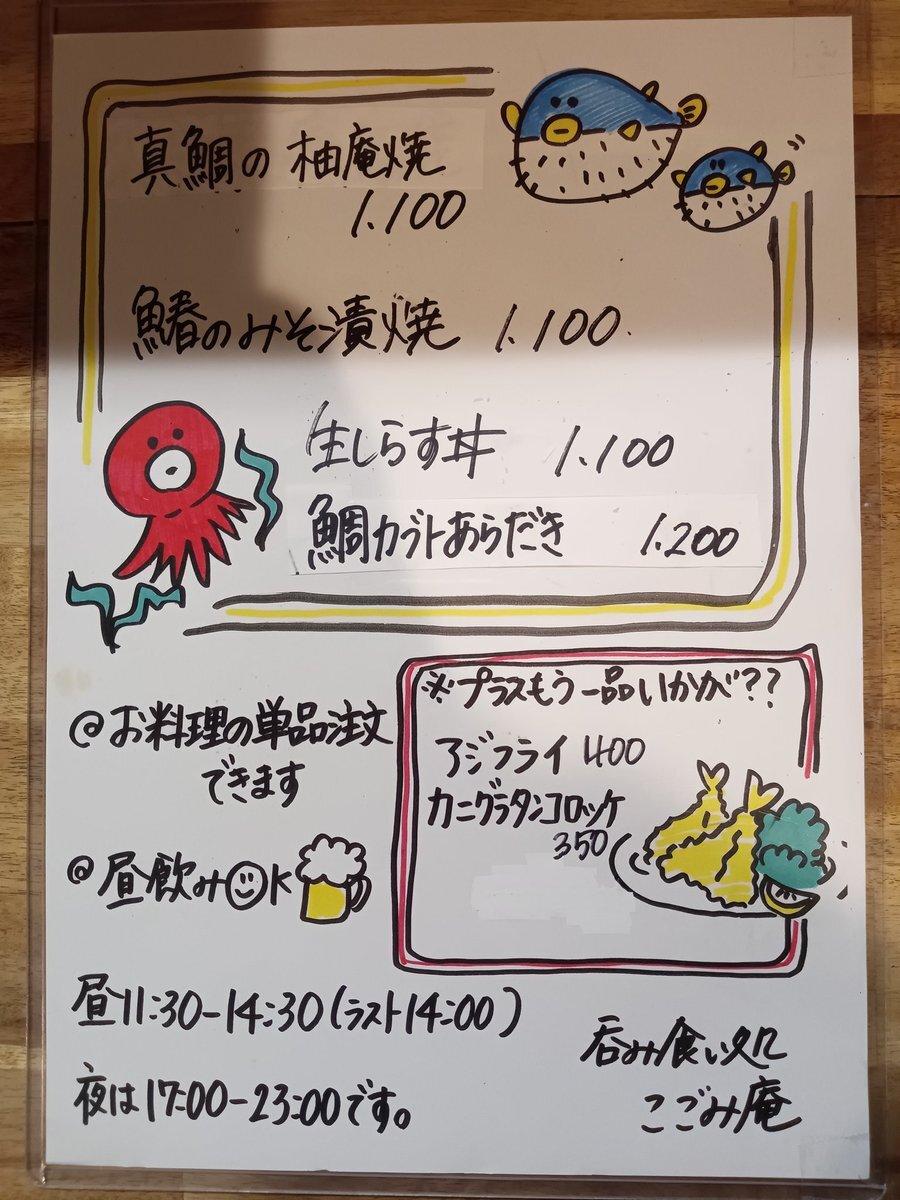 真鯛の柚庵焼
1.100
鰆のみそ漬焼 1.100
生しらす丼 1.100
鯛カブトあらだき 1.200
※プラスもう一品いかが??
アジフライ 400
カニグラタンコロッケ
350
@お料理の単品注文
できます
@昼飲みOK
昼11:30-14:30(ラスト14:00)
夜は17:00-23:00です。
呑み食い処
こごみ庵